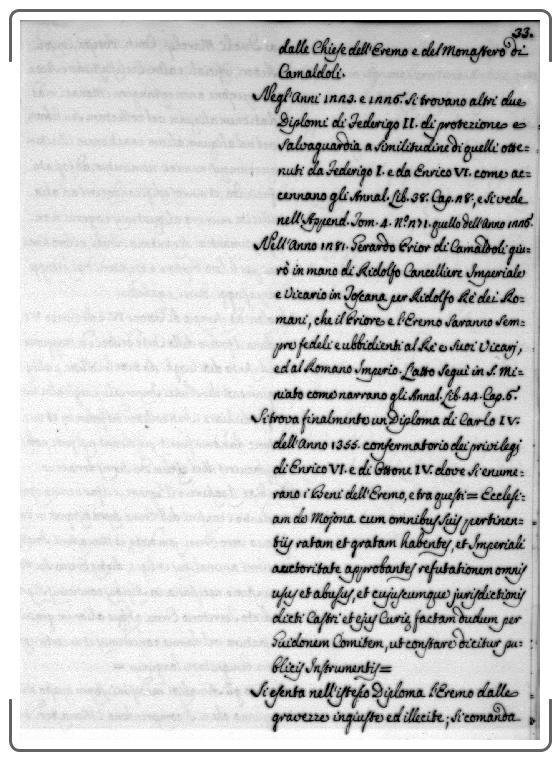 33.
dalle Chiese dell'Eremo e del Monastero di
Camaldoli.
Negl'Anni 1223. e 1226. si trovano altri due
Diplomi di Federigo II. di protezione e
Salvaguardia a similitudine di quelli otte=
nuti da Federigo I. e da Enrico VI. come ac=
cennano gli Annal. Lib. 38. Cap. 28., e si vede
nell'Append. Tom. 4. N.º 271. quello dell'Anno 1226.
Nell'Anno 1281. Gerardo Prior di Camaldoli giu=
rò in mano di Ridolfo Cancelliere Imperiale
e Vicario in Toscana per Ridolfo Rè dei Ro=
mani, che il Priore e l'Eremo saranno sem=
pre fedeli e ubbidienti al Rè e suoi Vicarj,
ed al Romano Imperio. L'atto seguì in S. Mi=
niato come narrano gli Annal. Lib. 44. Cap. 6.
Si trova finalmente un Diploma di Carlo IV.
dell'Anno 1355. confermatorio dei privilegj
di Enrico VI. e di Ottone IV. dove si enume=
rano i Beni dell'Eremo, e tra questi = Ecclesi=
am de Mojona cum omnibus suis pertinen=
tiis ratam et gratam habentes, et Imperiali
auctoritate approbantes refutationem omnis
usus et abusus, et cujuscumque jurisdictionis
dicti Castri et ejus Curie factam dudum per
Guidonem Comitem, ut constare dicitur pu=
blicis Instrumentis =
Si esenta nell'istesso Diploma l'Eremo dalle
gravezze ingiuste ed illecite; si comanda